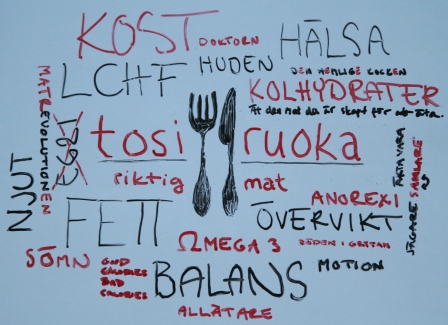 KOST
DOKTORN
HÄLSA
LCHF
HUDEN
DEN HEMLIGE KOCKEN
KOLHYDRATER
Ät den mat du är skapt för att äta.
MATREVOLUTIONEN
tosi ruoka
riktig mat
NJUT
FETT
ANOREXI
ÖVERVIKT
ÄTA VARA
JÄGARE
SAMLARE
ΩMEGA 3
DÖDEN I GRYTAN
SÖMN
GOOD
CALORIES
BAD
CALORIES
BALANS
MOTION
ALLÄTARE